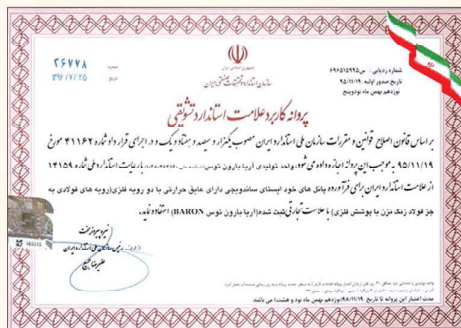 جمهوری اسلامی ایران
سازمان استاندارد و تحقیقات صنعتی ایران
شماره ۲۶۷۷۸
تاریخ ۳۹۶/۷/۲۵
شماره ردیابی : س۶۹۶۵۱۵۹۹۵
تاریخ صدور اولیه :۹۵/۱۱/۱۹
نوزدهم بهمن ماه نودوپنج
پروانه کاربرد علامت استاندارد تشویقی
بر اساس قانون اصلاح قوانین و مقررات سازمان ملی استاندارد ایران مصوب یکهزار و سیصد و هفتاد و یک و در اجرای قرارداد شماره ۴۱۱۶۲ مورخ
۹۵/۱۱/۱۹ بموجب این پروانه اجازه داده می شود: واحد تولیدی آریا بارون توس با رعایت استاندارد ملی شماره ۱۴۱۵۹
از علامت استاندارد ایران برای فرآورده پانل های خود ایستای ساندویچی دارای عایق حرارتی با دو رویه فلزی(رویه های فولادی به
جز فولاد زنگ نزن با پوشش فلزی) با علامت تجارتی ثبت شده(آریا بارون توس BARON) استفاده نماید.
نیره پیروزبخت
رئیس سازمان ملی استاندارد ایران
مدت اعتبار این پروانه تا تاریخ ۹۸/۱۱/۱۹(نوزدهم بهمن ماه نود و هشت) می باشد.